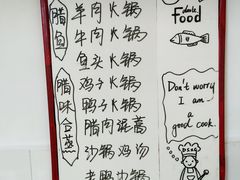 腊鱼
腊味合蒸
羊肉火锅
牛肉火锅
鱼头火锅
鸡子火锅
鸭子火锅
腊肉泥蒿
沙锅鸡汤
老鸭沙锅
Food
Don't worry
I am
a
good cook.